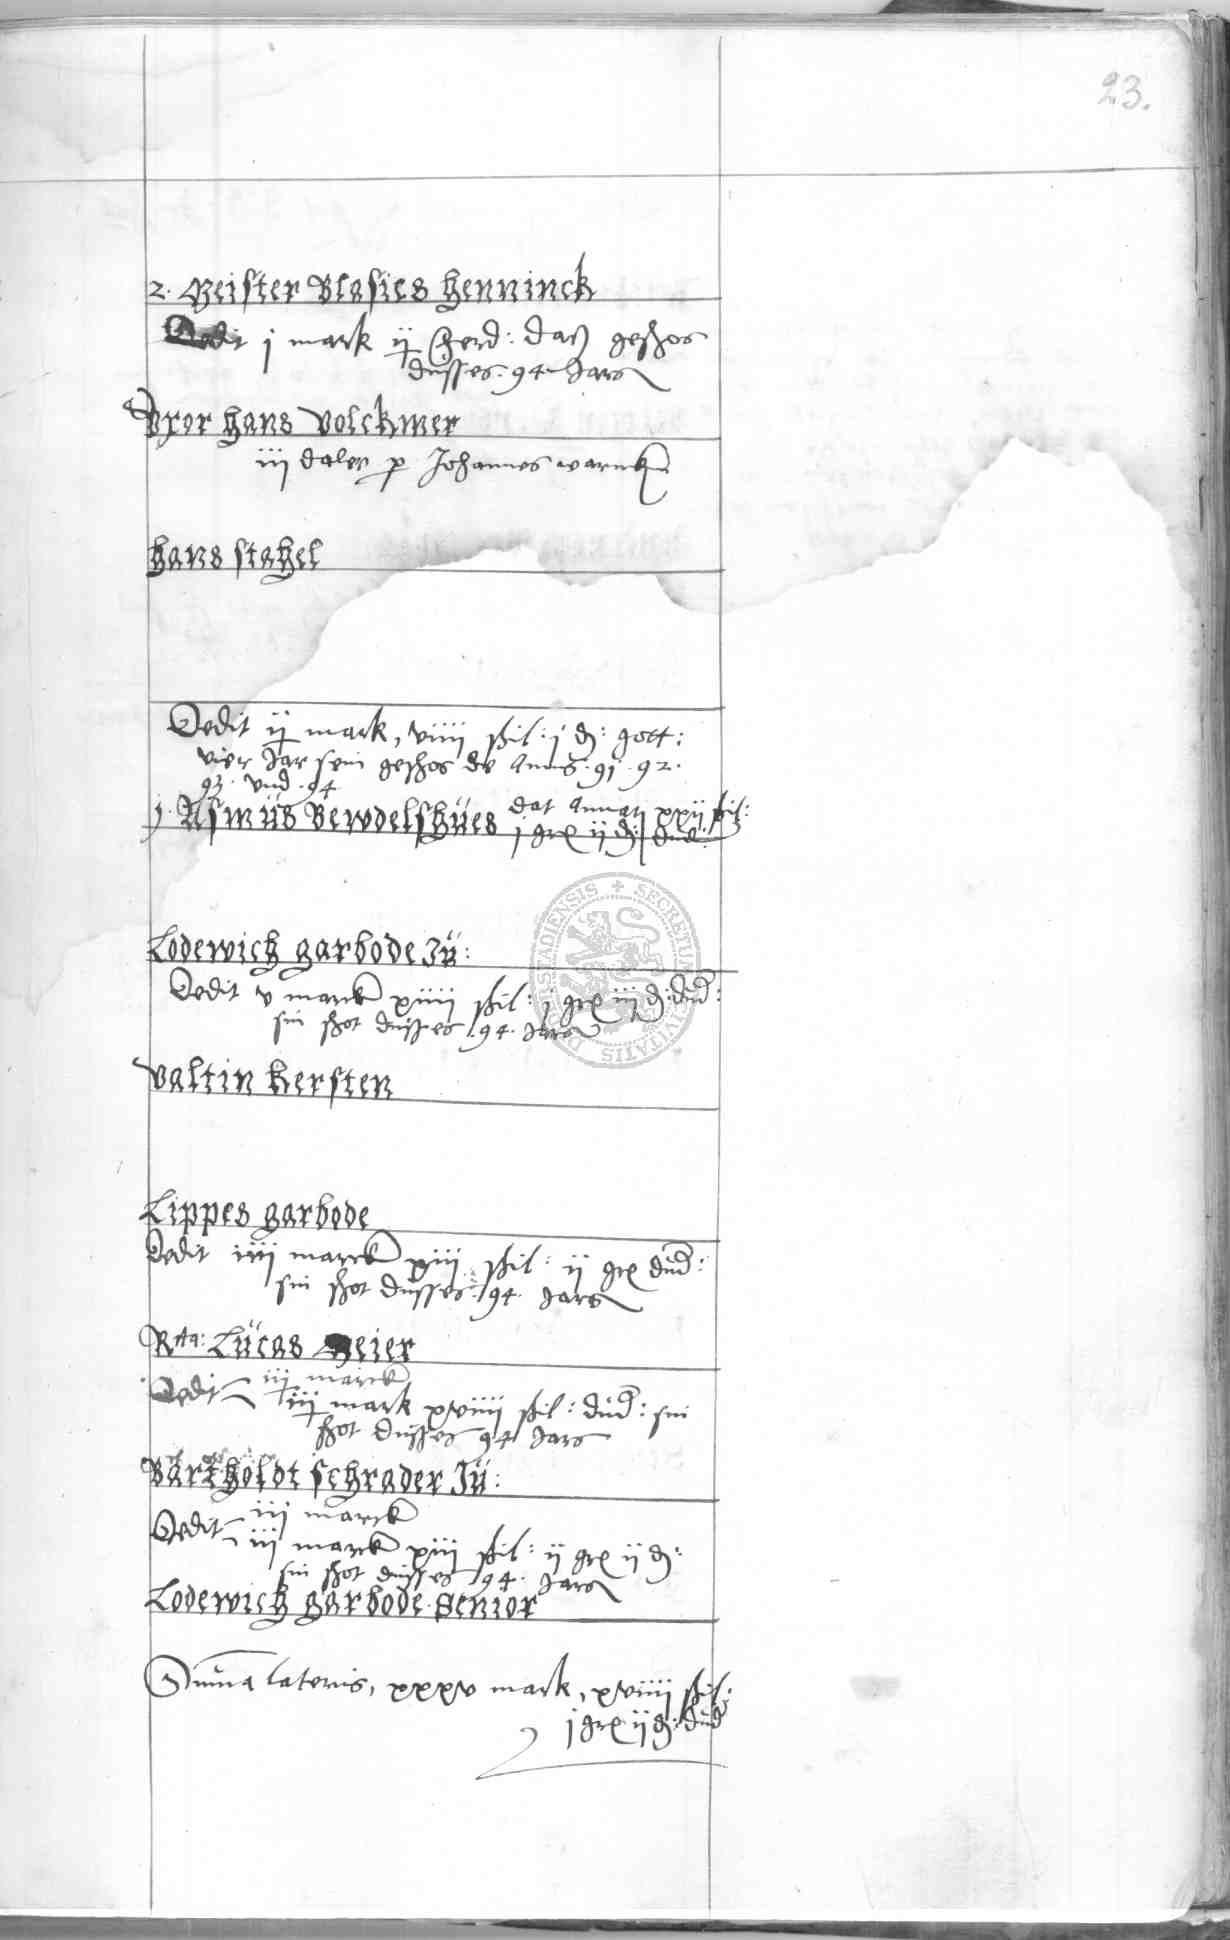 23.
2. Meister Blasies Henninck
Dedit j mark ij ferd: daß geschos
dusses. 94 Jars
Vxor Hans Volckmer
iij daler p Johannes warnk
Hans Stahel
Dedit ij mark, viiij schil: j d: gott:
vier Jar sein geschos de Annis. 91. 92.
93. vnd. 94
j. Asmüs Bewdelshües dat Annuati xxij schil:
j gr ij d: dud:
Lodewich Garbode Jü:
Dedit v marck xiiij schil: j gr iij d: dud:
sin schot dusses .94. Jars
Valtin Kersten
Lippes Garbode
Dedit iiij marck xiij schil: ij gr dud:
sin schot dusses. 94. Jars
Rta: Lücas Meier
Dedit iij marck
iij mark xviiij schil: dud: sin
schot dusses 94 Jars
Bartholdt Schrader Jü:
Dedit iij marck
iij marck xiij schil: ij gr ij d:
sin schot dusses 94. Jars
Lodewich Garbode. Senior
Summa lateris, xxxv mark, xviiij schil:
j gr ij d: dud
SECRETUM CIVITATIS